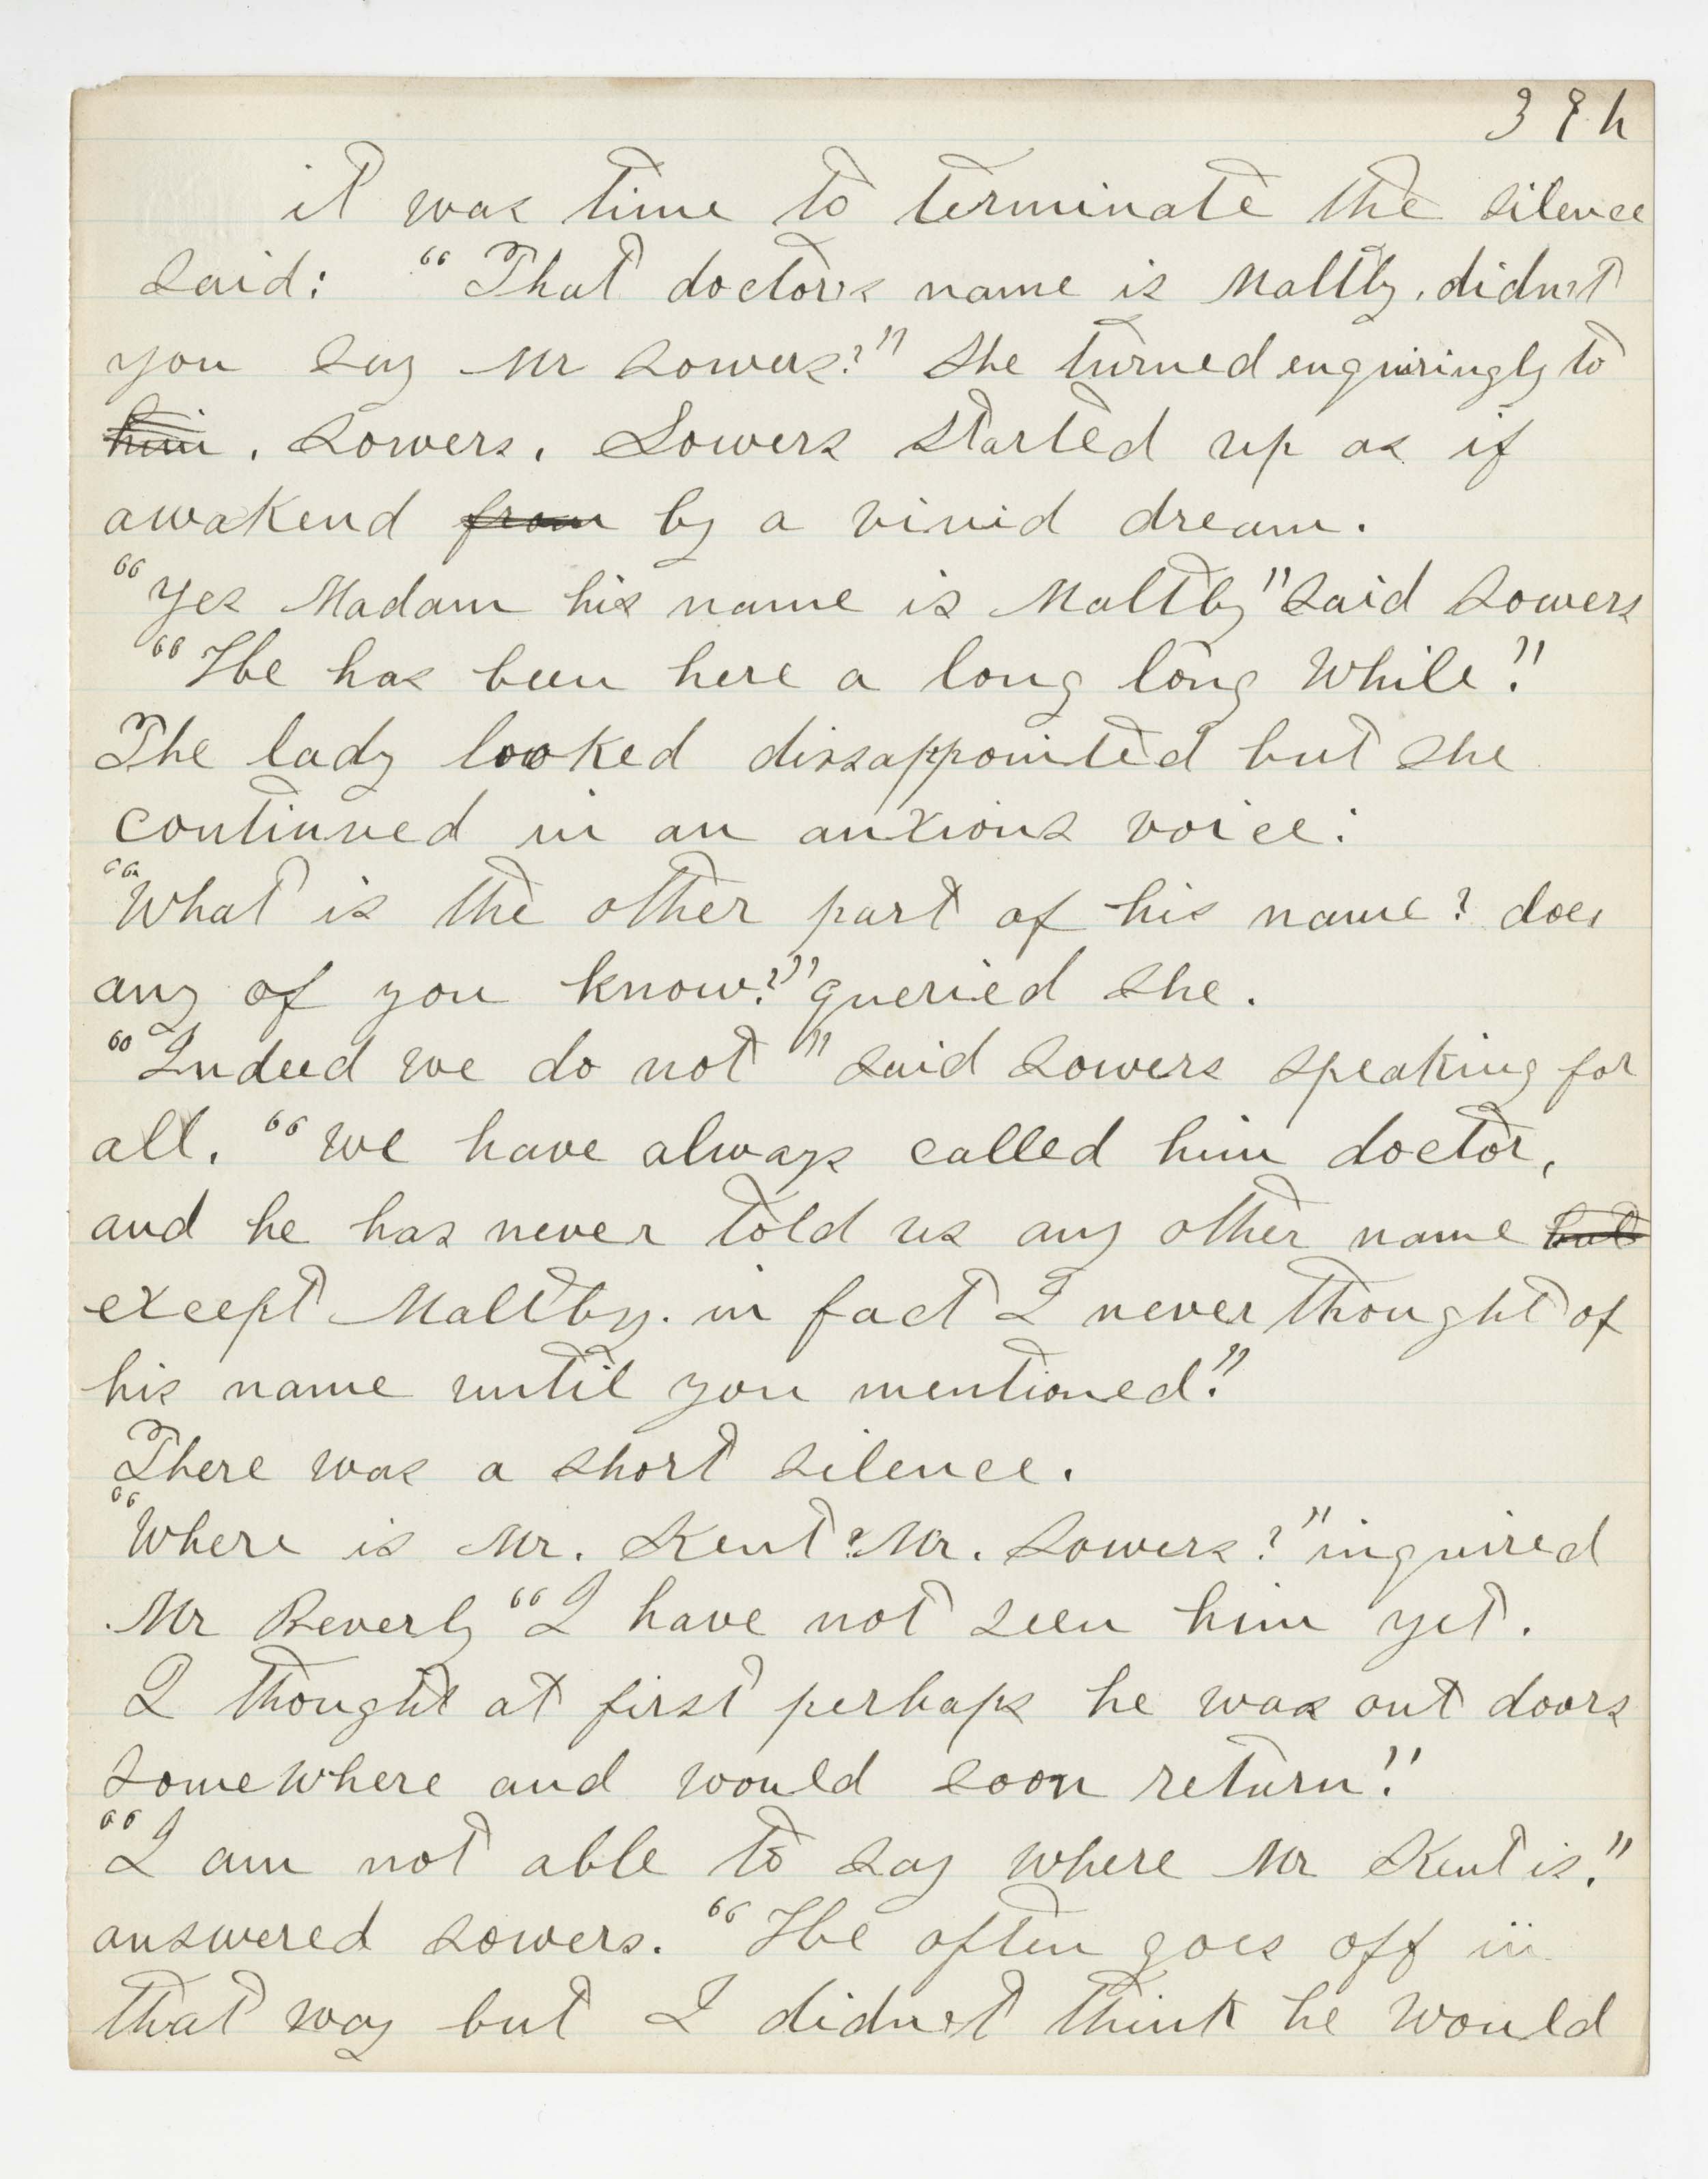 39h
it was time to terminate the silence
said: "That doctor's name is Maltby, didn't
you say Mr Sowers?" She turned enquiringly to
him. Sowers. Sowers started up as if
awakend from by a vivid dream.
"Yes Madam his name is Maltby" said Sowers
"He has been here a long long while."
The lady looked dissappointed but she
continued in an anxious voice:
"What is the other part of his name? does
any of you know?" queried she.
"Indeed we do not" said Sowers speaking for
all. "We have always called him doctor,
and he has never told us any other name but
except Maltby. in fact I never thought of
his name until you mentioned."
There was a short silence.
"Where is Mr. Kent? Mr. Sowers?" inquired
Mr Beverly "I have not seen him yet.
I thought at first perhaps he was out doors
somewhere and would soon return."
"I am not able to say where Mr Kent is."
answered Sowers. "He often goes off in
that way but I didn't think he would